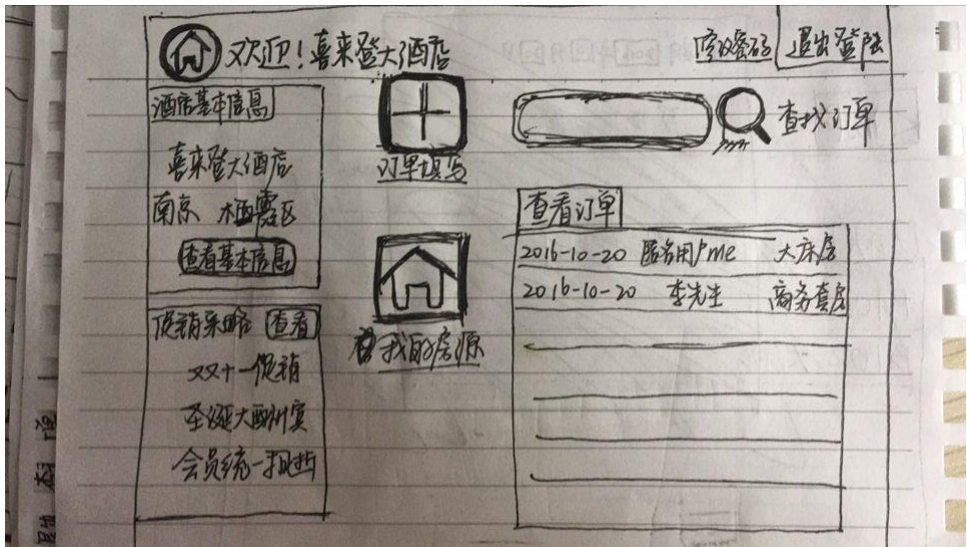 欢迎!喜来登大酒店
修改密码 退出登陆
酒店基本信息
喜来登大酒店
南京 栖霞区
查看基本信息
促销策略 查看
双十一促销
圣诞大酬宾
会员统一折扣
订单填写
我的房源
查找订单
查看订单
2016-10-20 匿名用户me 大床房
2016-10-20 李先生 商务套房